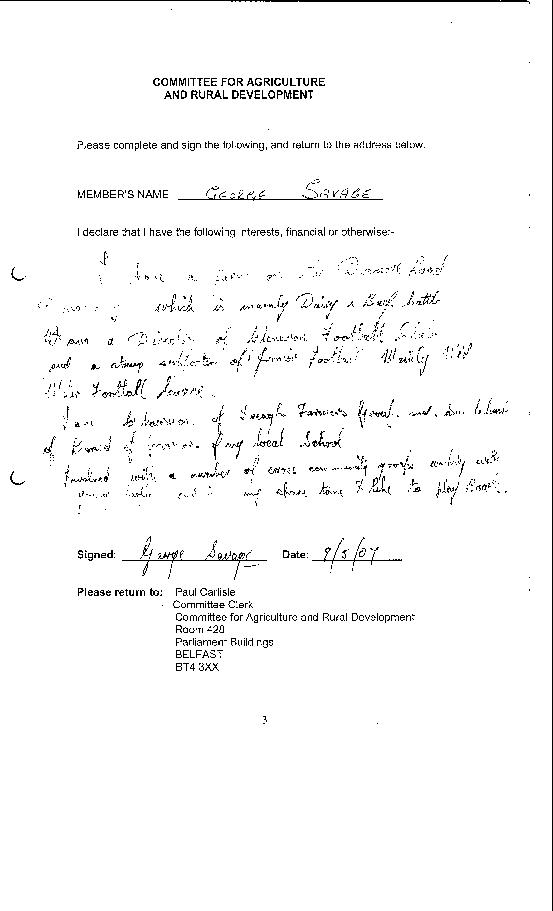 COMMITTEE FOR AGRICULTURE
AND RURAL DEVELOPMENT
Please complete and sign the following, and return to the address below.
MEMBER'S NAME GEORGE SAVAGE
I declare that I have the following interests, financial or otherwise:-
I have a farm on the Road
which is mainly Dairy & Beef Cattle
I am a Director of Glenavon Football Club
and a supporter of Junior Football Mainly Mid
Ulster Football League.
I am Chairman of Farmers and am Chair
of Board of Governors of my local School
Involved with a number of cross community groups mainly with
and in my spare time I like to play
Signed: George Savage Date: 9/5/07
Please return to: Paul Carlisle
Committee Clerk
Committee for Agriculture and Rural Development
Room 428
Parliament Buildings
BELFAST
BT4 3XX
3